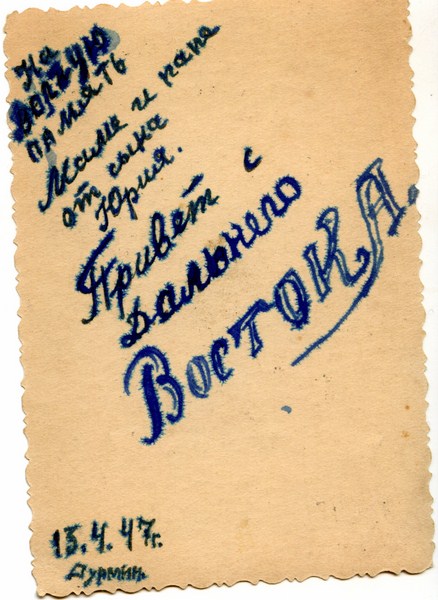 На
долгую
память
Маме и папе
от сына
Юрия.
Привет с
Дальнего
Востока.
13.4.47г.
Дурмин.